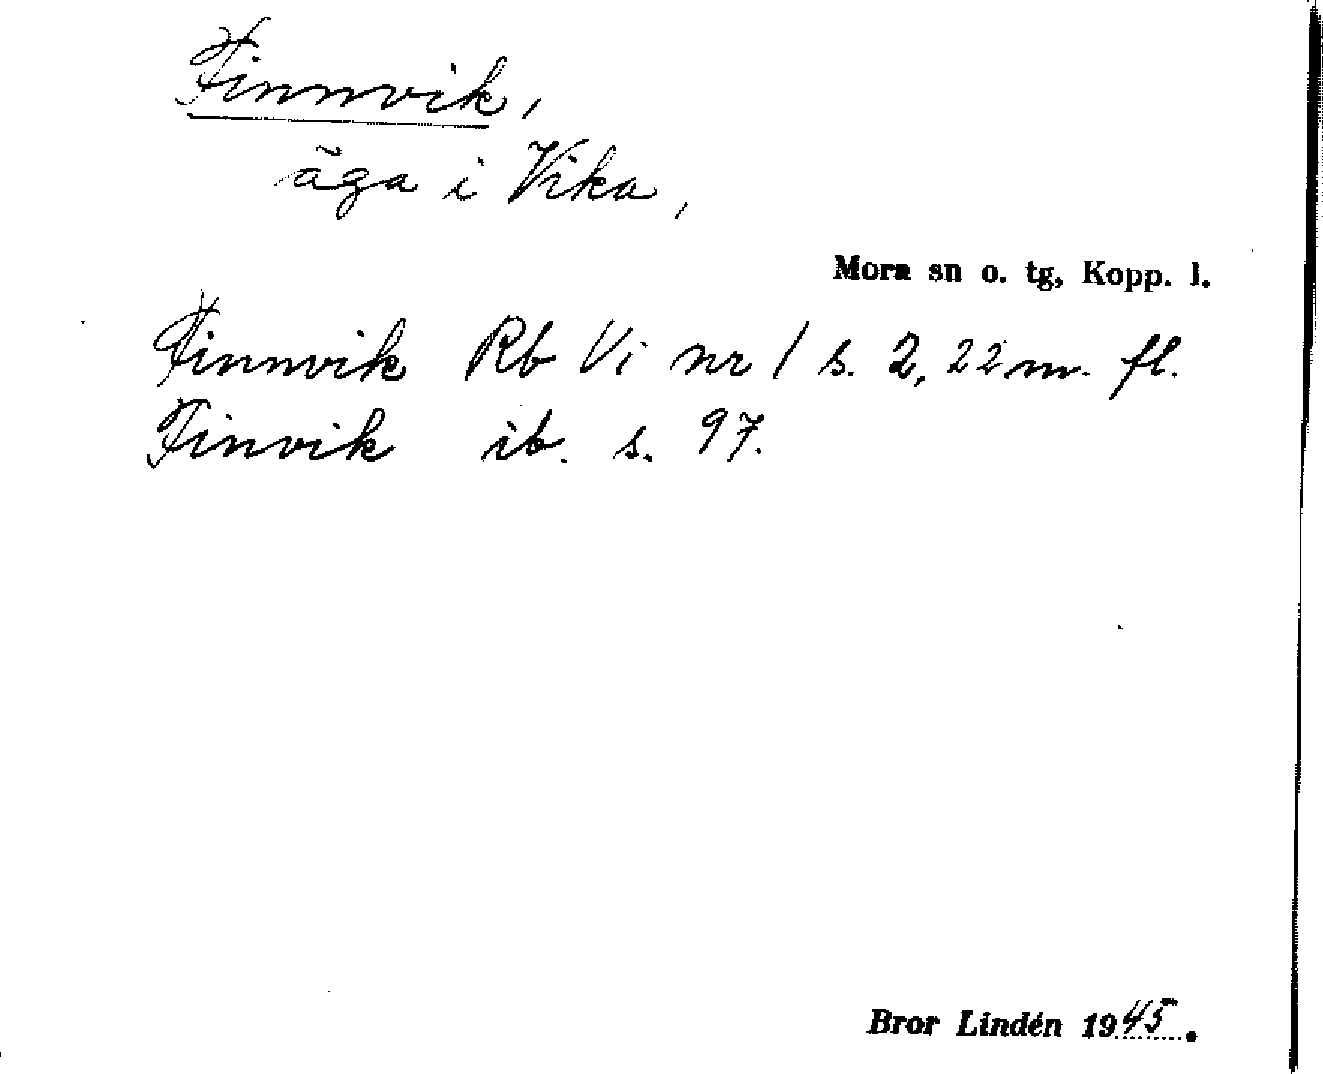 Finnvik,
äga i Vika,
Mora sn o. tg, Kopp. l.
Finnvik Rb Vi nr 1 s. 2, 22 m. fl.
Finvik ib. s. 97.
Bror Lindén 1945.